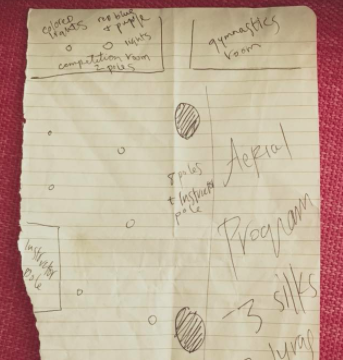 colored
lights
no blue
+ purple
lights
competition room
2 poles
gymnastics
room
8 poles
+ Instructor
pole
Aerial
Program
Instructor
pole
3 silks